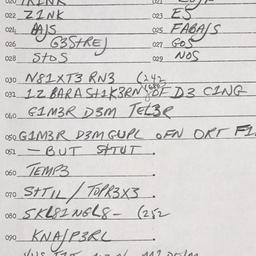 022 ZINK 023 ES
024 BAJS 025 FABAJS
026 G3STREJ 027 GOS
028 STOS 029 NOS
030 N81XT3 RN3 (242
031 1Z BARA ST1K3RN OF D3 C1NG
040 G1M3R D3M TEL3R
050 G1M3R D3M GUPL OFN ORT F1
051 - BUT STTUT.
060 TEMP3.
070 STTIL / TOPR3X3.
080 SKL81NGL8- (252
090 KNAJP3RL.